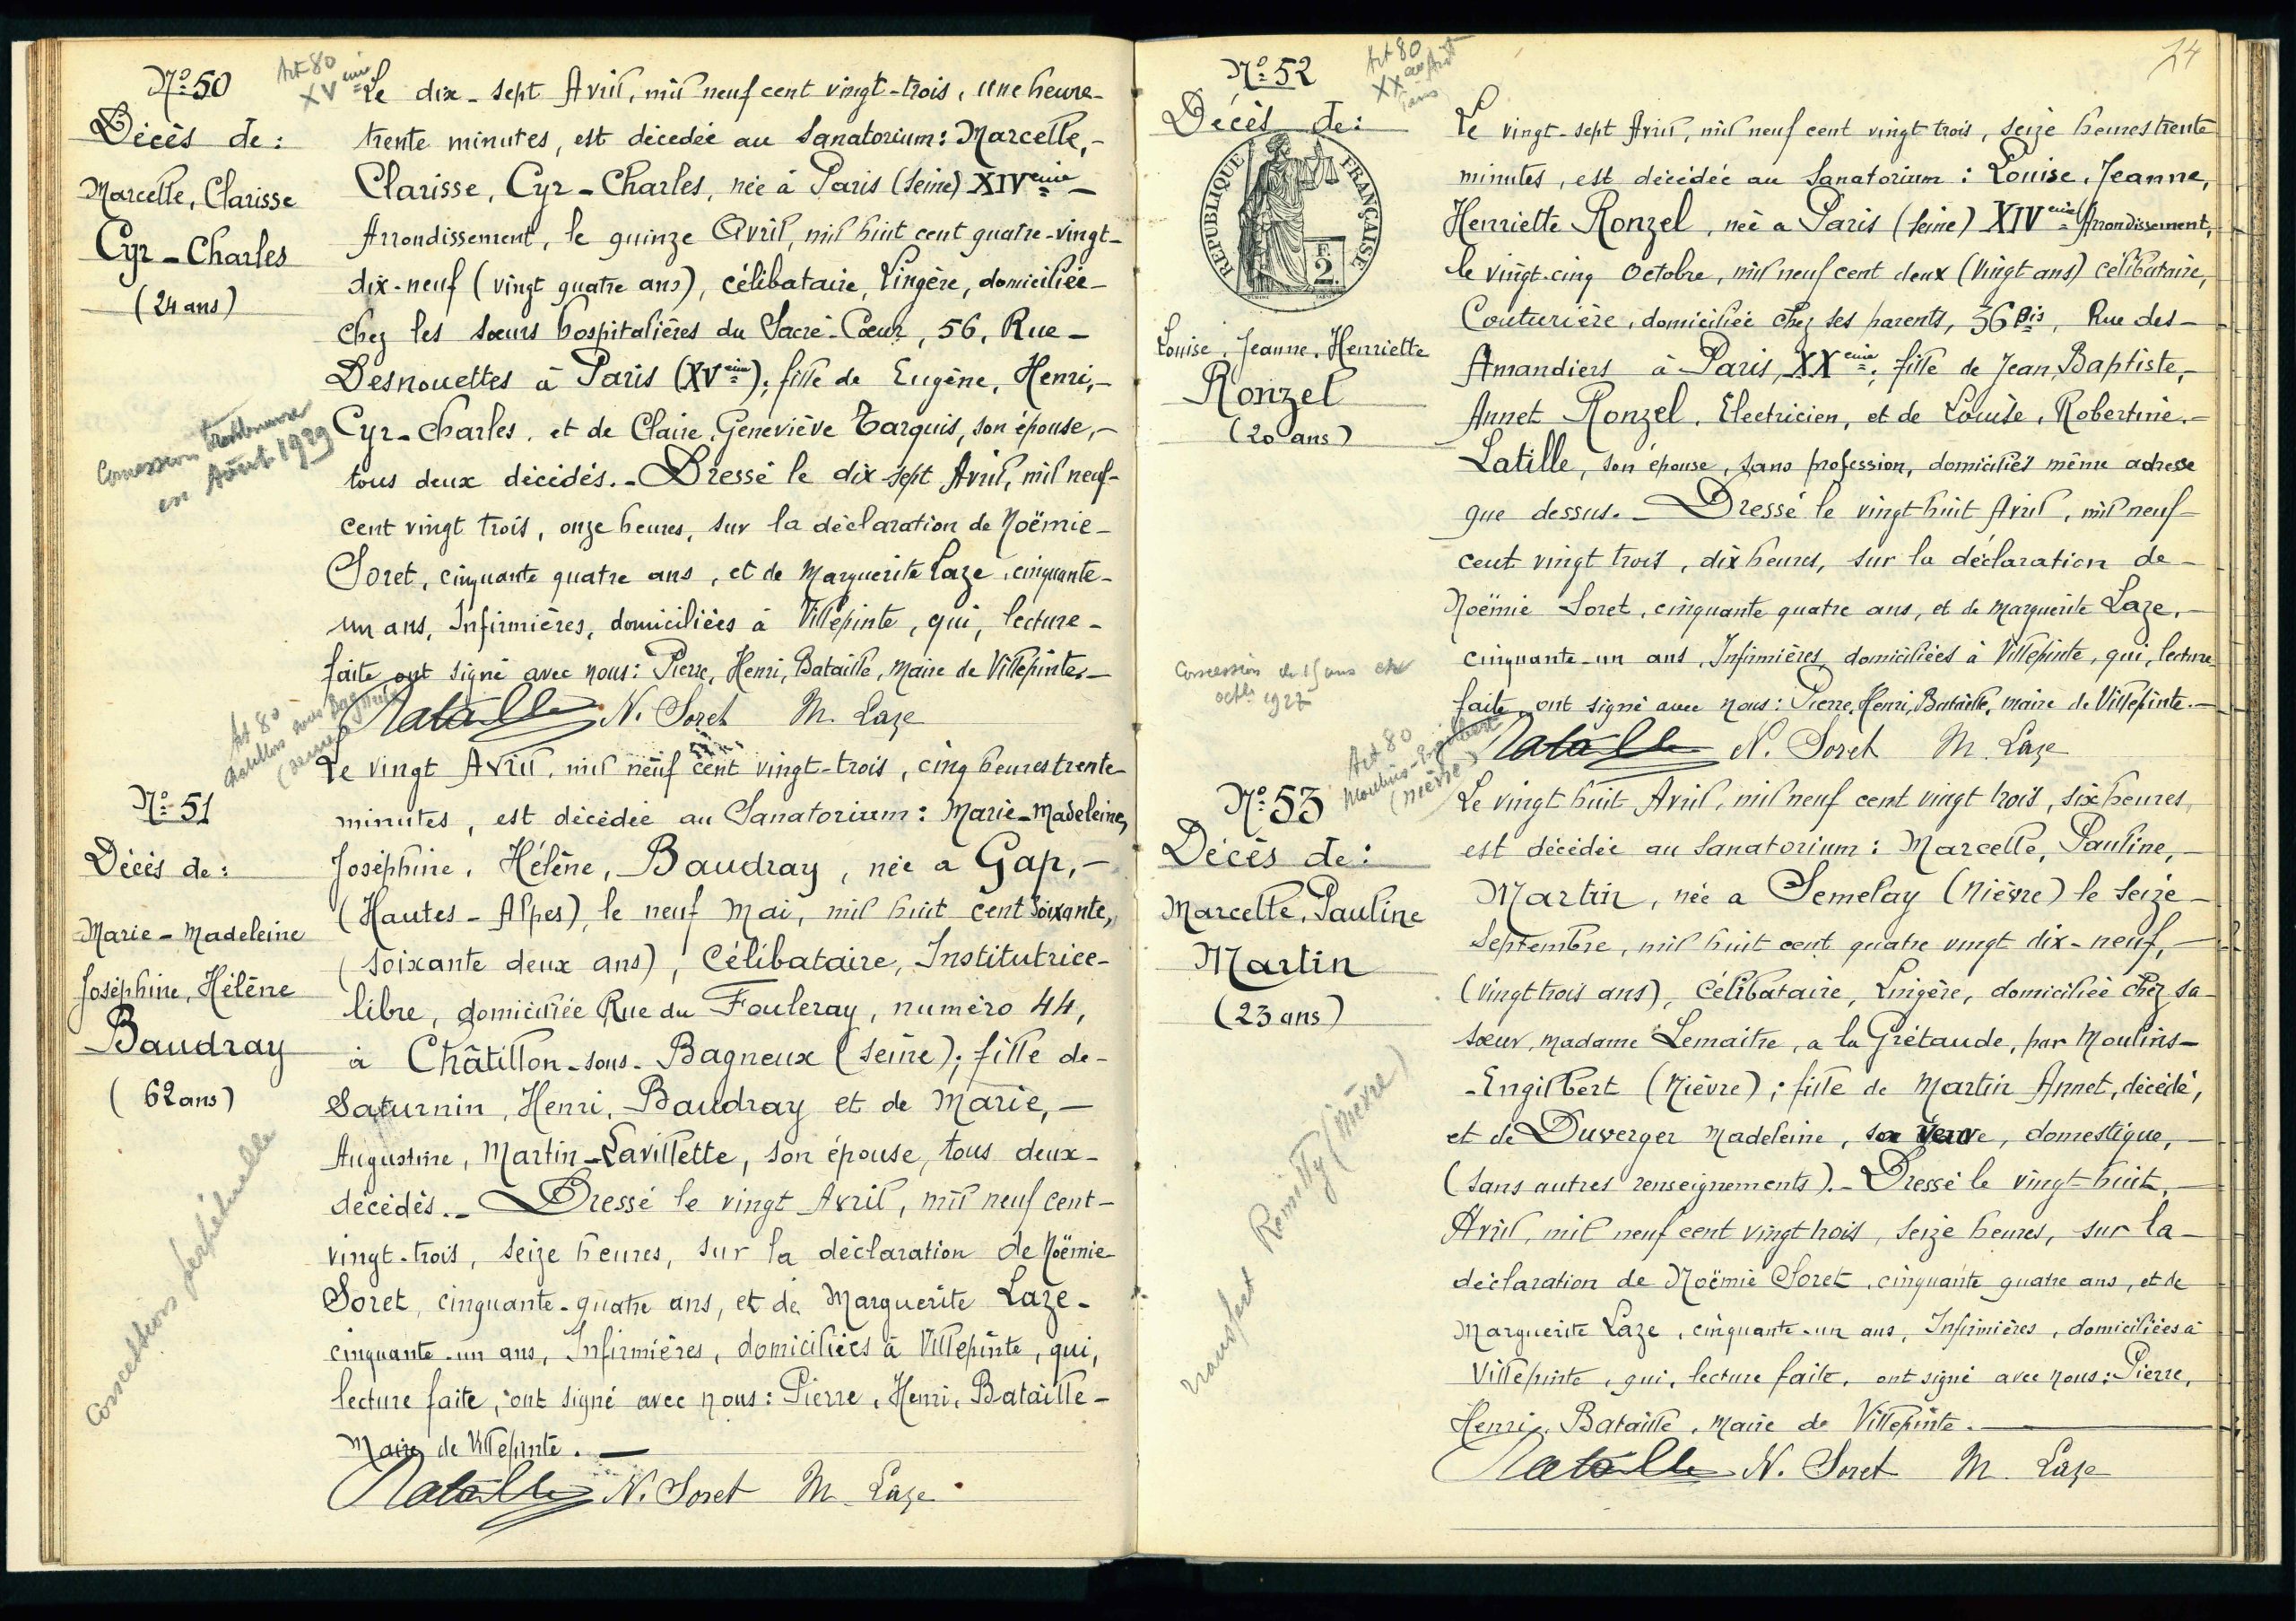 Nº 50
Art 80
XVeme
Décès de:
Marcelle, Clarisse
Cyr-Charles
(24 ans)
Le dix-sept Avril, mil neuf cent vingt-trois, une heure-
trente minutes, est décédée au Sanatorium: Marcelle,-
Clarisse, Cyr-Charles, née à Paris (Seine) XIVeme-
Arrondissement, le quinze Avril, mil huit cent quatre-vingt-
dix-neuf (vingt quatre ans), célibataire, Lingère, domiciliée-
chez les sœurs hospitalières du Sacré-Cœur, 56, Rue-
Desnouettes à Paris (XVeme); fille de Eugène, Henri,-
Cyr-Charles, et de Claire, Geneviève Tarquis, son épouse,-
tous deux décédés.- Dressé le dix-sept Avril, mil neuf-
cent vingt trois, onze heures, sur la déclaration de Noëmie-
Soret, cinquante quatre ans, et de Marguerite Laze, cinquante-
un ans, Infirmières, domiciliées à Villepinte, qui, lecture-
faite ont signé avec nous: Pierre, Henri, Bataille, Maire de Villepinte.-
Bataille N. Soret M. Laze
Concession trentenaire
en Août 1929
Art 80
Chatillon sous Bagneux
(Seine)
Nº 51
Décès de:
Marie-Madeleine
Joséphine, Hélène
Baudray
(62 ans)
Concession perpétuelle
Le vingt Avril, mil neuf cent vingt-trois, cinq heures trente
minutes, est décédée au Sanatorium: Marie-Madeleine,
Joséphine, Hélène, Baudray, née a Gap,-
(Hautes-Alpes), le neuf Mai, mil huit cent soixante,
(soixante deux ans), Célibataire, Institutrice-
libre, domiciliée Rue du Fouleray, numéro 44,
à Châtillon-sous-Bagneux (Seine); fille de-
Saturnin, Henri, Baudray et de Marie,-
Augustine, Martin-Lavillette, son épouse, tous deux-
décédés.- Dressé le vingt Avril, mil neuf cent-
vingt-trois, seize heures, sur la déclaration de Noëmie
Soret, cinquante-quatre ans, et de Marguerite Laze-
cinquante-un ans, Infirmières, domiciliées à Villepinte, qui,
lecture faite, ont signé avec nous: Pierre, Henri, Bataille-
Maire de Villepinte.-
Bataille N. Soret M. Laze
24
Nº 52
Art 80
XXe Art
Paris
Décès de:
REPUBLIQUE FRANÇAISE
F
2
Louise, Jeanne, Henriette
Ronzel
(20 ans)
Le vingt-sept Avril, mil neuf cent vingt trois, seize heures trente
minutes, est décédée au Sanatorium: Louise, Jeanne,
Henriette Ronzel, née a Paris (Seine) XIVeme Arrondissement,
le vingt-cinq Octobre, mil neuf cent deux (vingt ans) célibataire,
Couturière, domiciliée chez ses parents, 36 Bis, Rue des-
Amandiers à Paris, XXeme; fille de Jean, Baptiste,-
Annet Ronzel, Electricien, et de Louise, Robertine.-
Latille, son épouse, sans profession, domiciliés même adresse
que dessus.- Dressé le vingt huit Avril, mil neuf-
cent vingt trois, dix heures, sur la déclaration de-
Noëmie Soret, cinquante quatre ans, et de Marguerite Laze.-
cinquante-un ans, Infirmières domiciliées à Villepinte, qui, lecture
faite, ont signé avec nous: Pierre, Henri, Bataille, Maire de Villepinte.-
Bataille N. Soret M. Laze
Concession de 15 ans
octbre 1927
Art 80
Moulins-Engilbert
(Nièvre)
Nº 53
Décès de:
Marcelle, Pauline
Martin
(23 ans)
Transfert Remilly (Nièvre)
Le vingt huit Avril, mil neuf cent vingt trois, six heures,
est décédée au Sanatorium: Marcelle, Pauline,-
Martin, née a Semelay (Nièvre) le seize-
Septembre, mil huit cent quatre vingt dix-neuf,-
(vingt trois ans), Célibataire, Lingère, domiciliée chez sa-
sœur, madame Lemaitre, a la Grétaude, par Moulins-
-Engilbert (Nièvre); fille de Martin Annet, décédé,
et de Duverger Madeleine, sa veuve, domestique,-
(sans autres renseignements).- Dressé le vingt-huit,-
Avril, mil neuf cent vingt trois, seize heures, sur la-
déclaration de Noëmie Soret, cinquante quatre ans, et de
Marguerite Laze, cinquante-un ans, Infirmières, domiciliées à
Villepinte, qui, lecture faite, ont signé avec nous: Pierre,
Henri, Bataille, Maire de Villepinte.-
Bataille N. Soret M. Laze